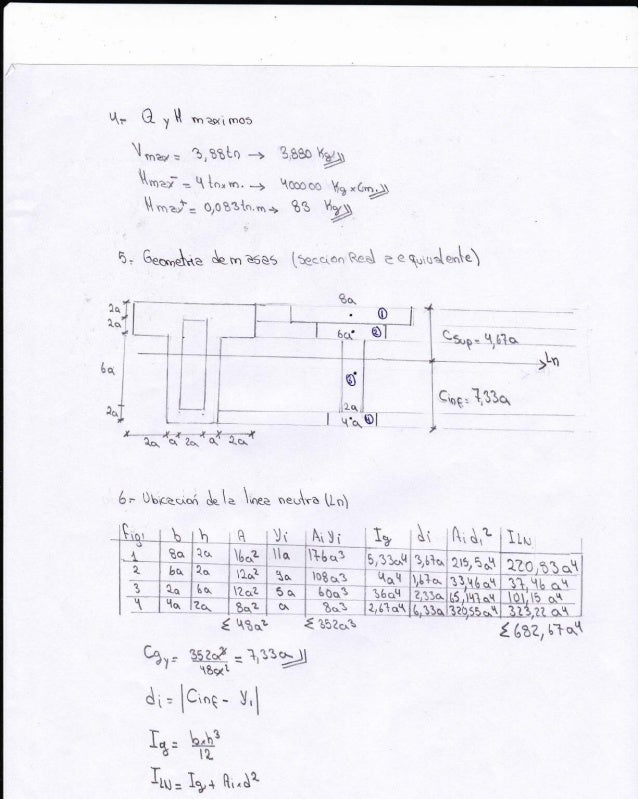 4.- Q y M maximos
Vmax = 3,88tn → 3,880 Kg
Mmax⁻ = 4 tnxm. → 400000 Kg x Cm.
Mmax⁺ = 0,083tn.m → 83 Kg
5.- Geometria de masas (Sección Real a equivalente)
8a
2a
2a
6a
2a
①
6a
②
③
2a
4a
④
Csup = 4,67a
Ln
Cinf = 7,33a
2a a 2a a 2a
6.- Ubicación de la linea neutra (Ln)
Fig: b h A Yi AiYi Ig di Aidi² ILN
1 8a 2a 16a² 11a 176a³ 5,33a⁴ 3,67a 215,5a⁴ 220,83a⁴
2 6a 2a 12a² 9a 108a³ 4a⁴ 1,67a 33,46a⁴ 37,46a⁴
3 2a 6a 12a² 5a 60a³ 36a⁴ 2,33a 65,147a⁴ 101,15a⁴
4 4a 2a 8a² a 8a³ 2,67a⁴ 6,33a 320,55a⁴ 323,22a⁴
Σ 48a² Σ 352a³ Σ 682,67a⁴
Cgy = 352a³/48a² = 7,33a
di = |Cinf - Yi|
Ig = bxh³/12
ILN = Ig + Aixd²